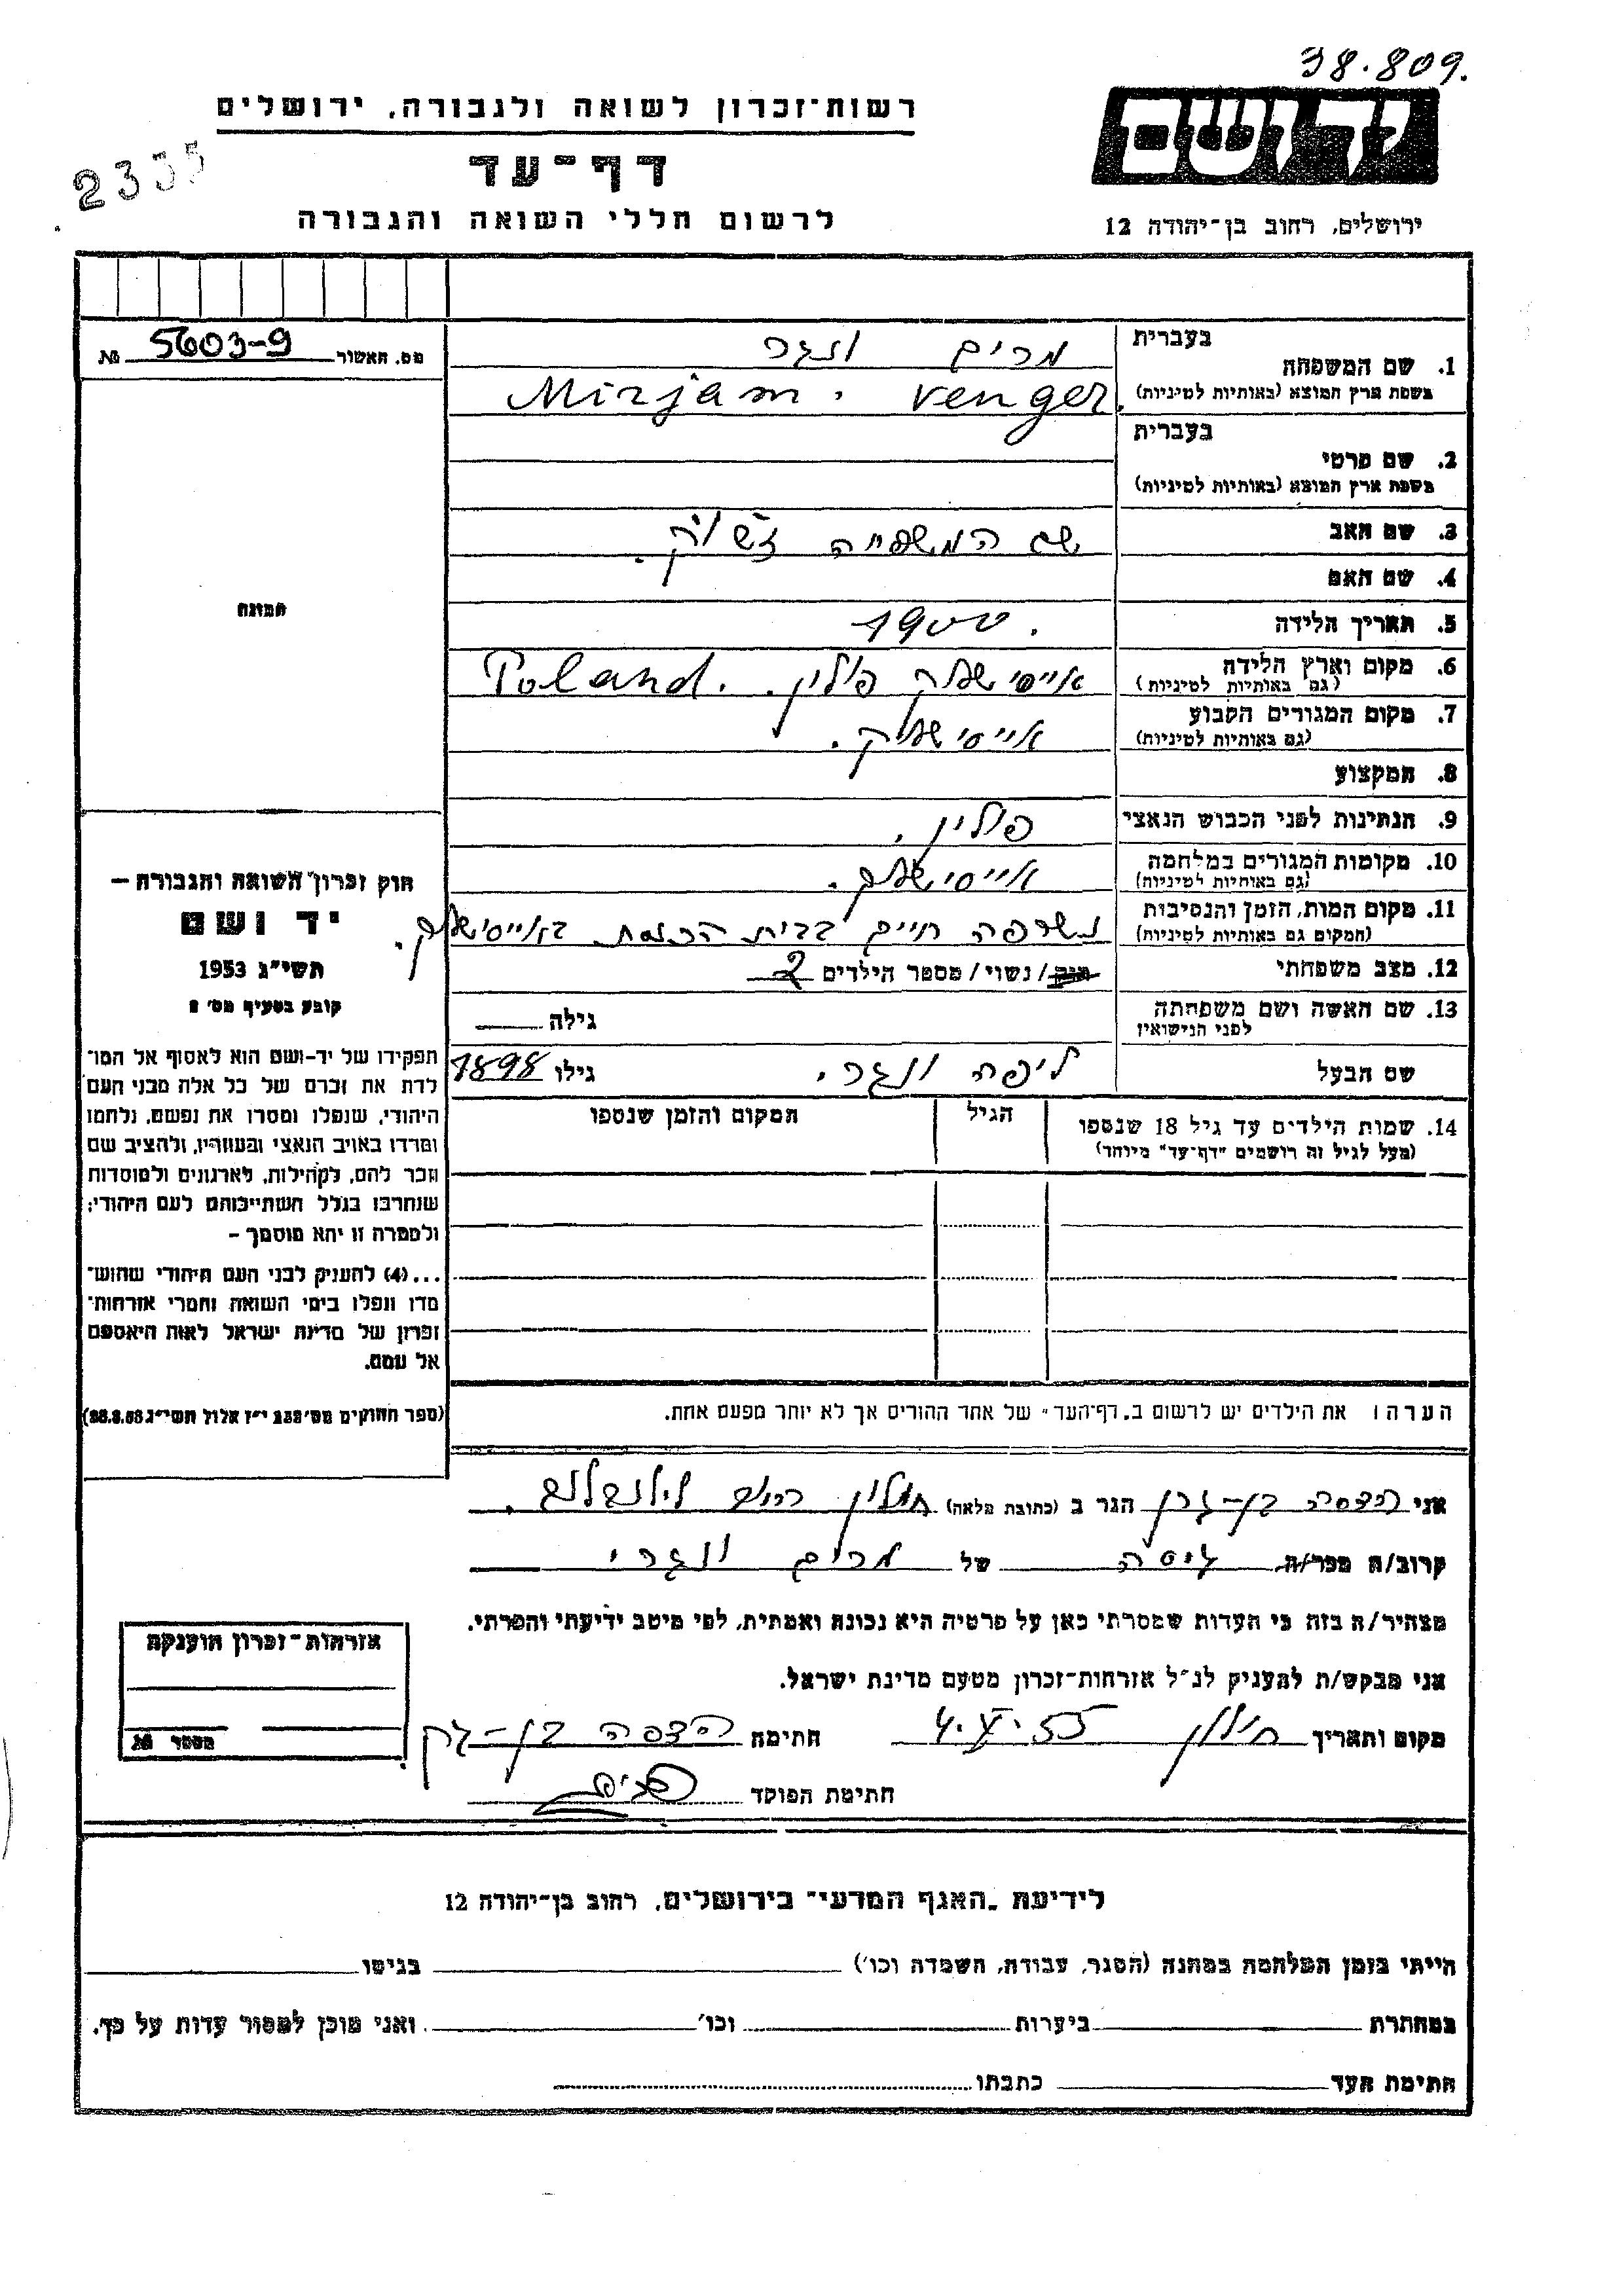 38.809.
יד ושם
רשות־זכרון לשואה ולגבורה, ירושלים
2335
דף־עד
לרשום חללי השואה והגבורה
ירושלים, רחוב בן־יהודה 12
מס. האשור 5603-9 №
בעברית
1. שם המשפחה
מרים ונגר
בשפת ארץ המוצא (באותיות לטיניות)
Mirjam. Venger.
בעברית
2. שם פרטי
בשפת ארץ המוצא (באותיות לטיניות)
3. שם האב
שם המשפחה
4. שם האם
5. תאריך הלידה 1900.
6. מקום וארץ הלידה
(גם באותיות לטיניות)
פולין. Poland.
7. מקום המגורים הקבוע
(גם באותיות לטיניות)
8. המקצוע
9. הנתינות לפני הכבוש הנאצי פולין.
10. מקומות המגורים במלחמה
(גם באותיות לטיניות)
11. מקום המות, הזמן והנסיבות
(המקום גם באותיות לטיניות)
נשרפה חיים בבית הכנסת
12. מצב משפחתי רוק/נשוי/מספר הילדים 2
13. שם האשה ושם משפחתה
לפני הנישואין
גילה
שם הבעל ליפה ונגר. גילו 1898
14. שמות הילדים עד גיל 18 שנספו
(מעל לגיל זה רושמים "דף־עד" מיוחד)
הגיל
המקום והזמן שנספו
הערה: את הילדים יש לרשום ב„דף־העד" של אחד ההורים אך לא יותר מפעם אחת.
התמונה
חוק זכרון השואה והגבורה –
יד ושם
תשי"ג 1953
קובע בסעיף מס' 2
תפקידו של יד-ושם הוא לאסוף אל המו־
לדת את זכרם של כל אלה מבני העם
היהודי, שנפלו ומסרו את נפשם, נלחמו
ומרדו באויב הנאצי ובעוזריו, ולהציב שם
וזכר להם, לקהילות, לארגונים ולמוסדות
שנחרבו בגלל השתייכותם לעם היהודי;
ולמטרה זו יהא מוסמך –
...(4) להעניק לבני העם היהודי שהוש־
מדו ונפלו בימי השואה והמרי אזרחות־
זכרון של מדינת ישראל לאות היאספם
אל עמם.
(ספר החוקים מס' 132 י"ז אלול תשי"ג 28.8.53)
אני הדסה בן-גרון הגר ב (כתובת מלאה) חולון
קרוב/ה מכר/ה גיסה של מרים ונגר
מצהיר/ה בזה כי העדות שמסרתי כאן על פרטיה היא נכונה ואמתית, לפי מיטב ידיעתי והכרתי.
אני מבקש/ת להעניק לנ"ל אזרחות־זכרון מטעם מדינת ישראל.
מקום ותאריך חולון 4.X.55 חתימה הדסה בן-גרון
חתימת הפוקד
אזרחות־זכרון הוענקה
מספר №
לידיעת „האגף המדעי" בירושלים, רחוב בן־יהודה 12
הייתי בזמן המלחמה במחנה (הסגר, עבודה, השמדה וכו') בגיטו
במחתרת ביערות וכו' ואני מוכן למסור עדות על כך.
חתימת העד כתבתו